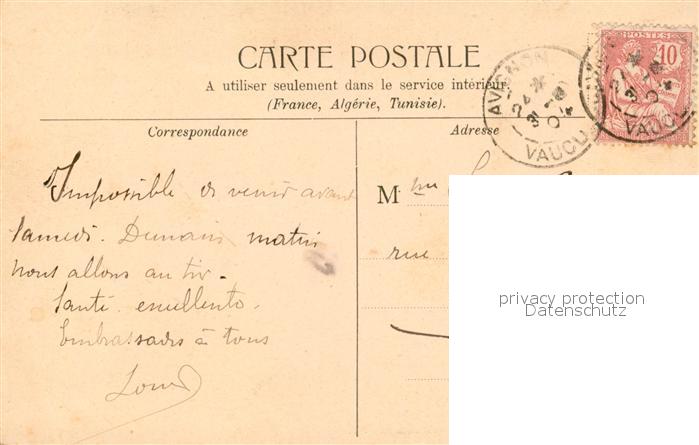 CARTE POSTALE
A utiliser seulement dans le service intérieur.
(France, Algérie, Tunisie).
Correspondance
Adresse
Impossible de venir avant
samedi. Demain matin
nous allons au tir.
Santé excellente.
Embrassades à tous
Mme
rue
AVIGNON
VAUCL
POSTES
10
privacy protection
Datenschutz